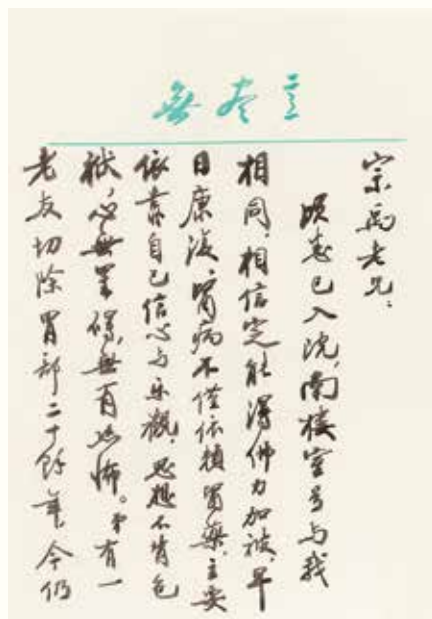 無尽意
宗禹老兄：
頃悉已入院，南楼室号与我
相同，相信定能得佛力加被，早
日康復。胃病不僅依頼醫藥，主要
依靠自己信心与乐觀，思想不背包
袱，心無罣礙，無有恐怖。弟有一
老友切除胃部二十餘年，今仍